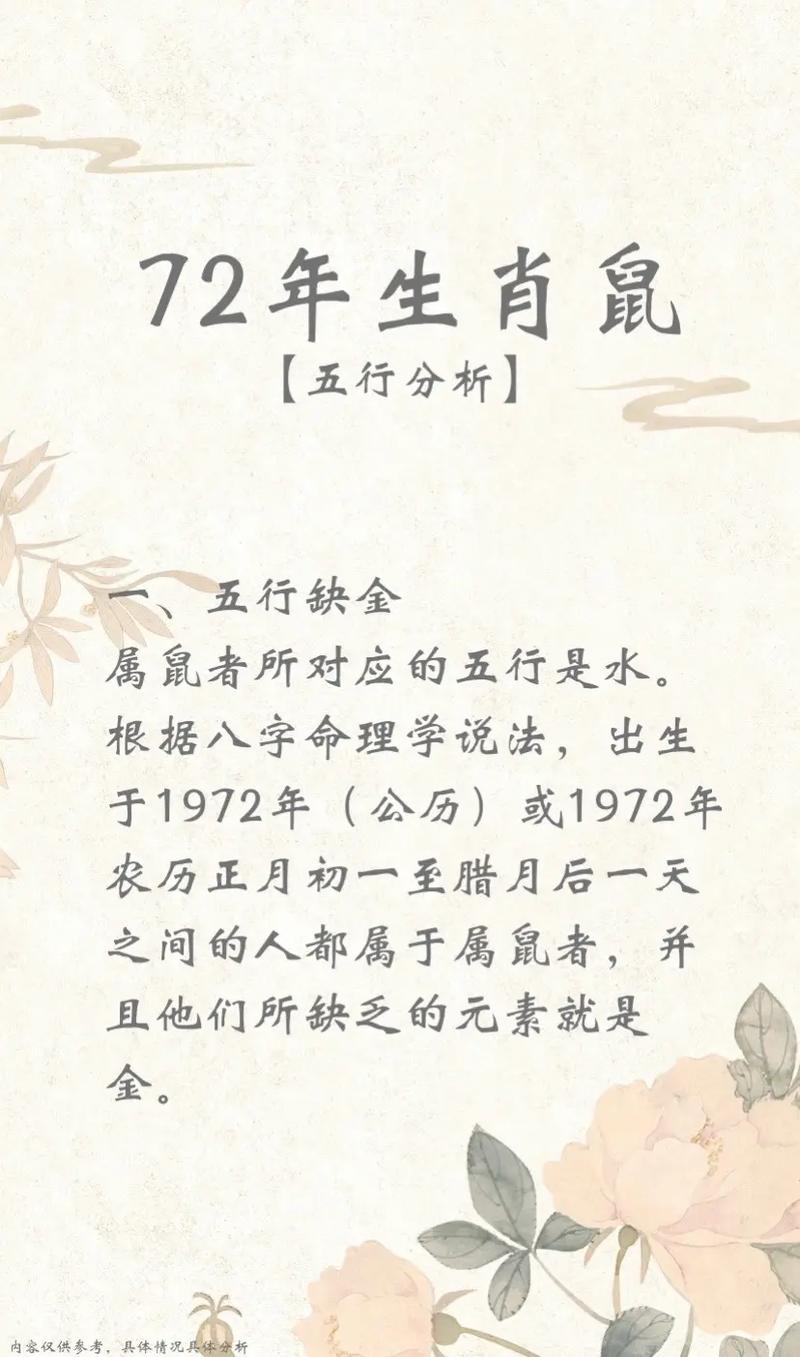 72年生肖鼠
【五行分析】
一、五行缺金
属鼠者所对应的五行是水。
根据八字命理学说法，出生
于1972年（公历）或1972年
农历正月初一至腊月后一天
之间的人都属于属鼠者，并
且他们所缺乏的元素就是
金。
内容仅供参考，具体情况具体分析